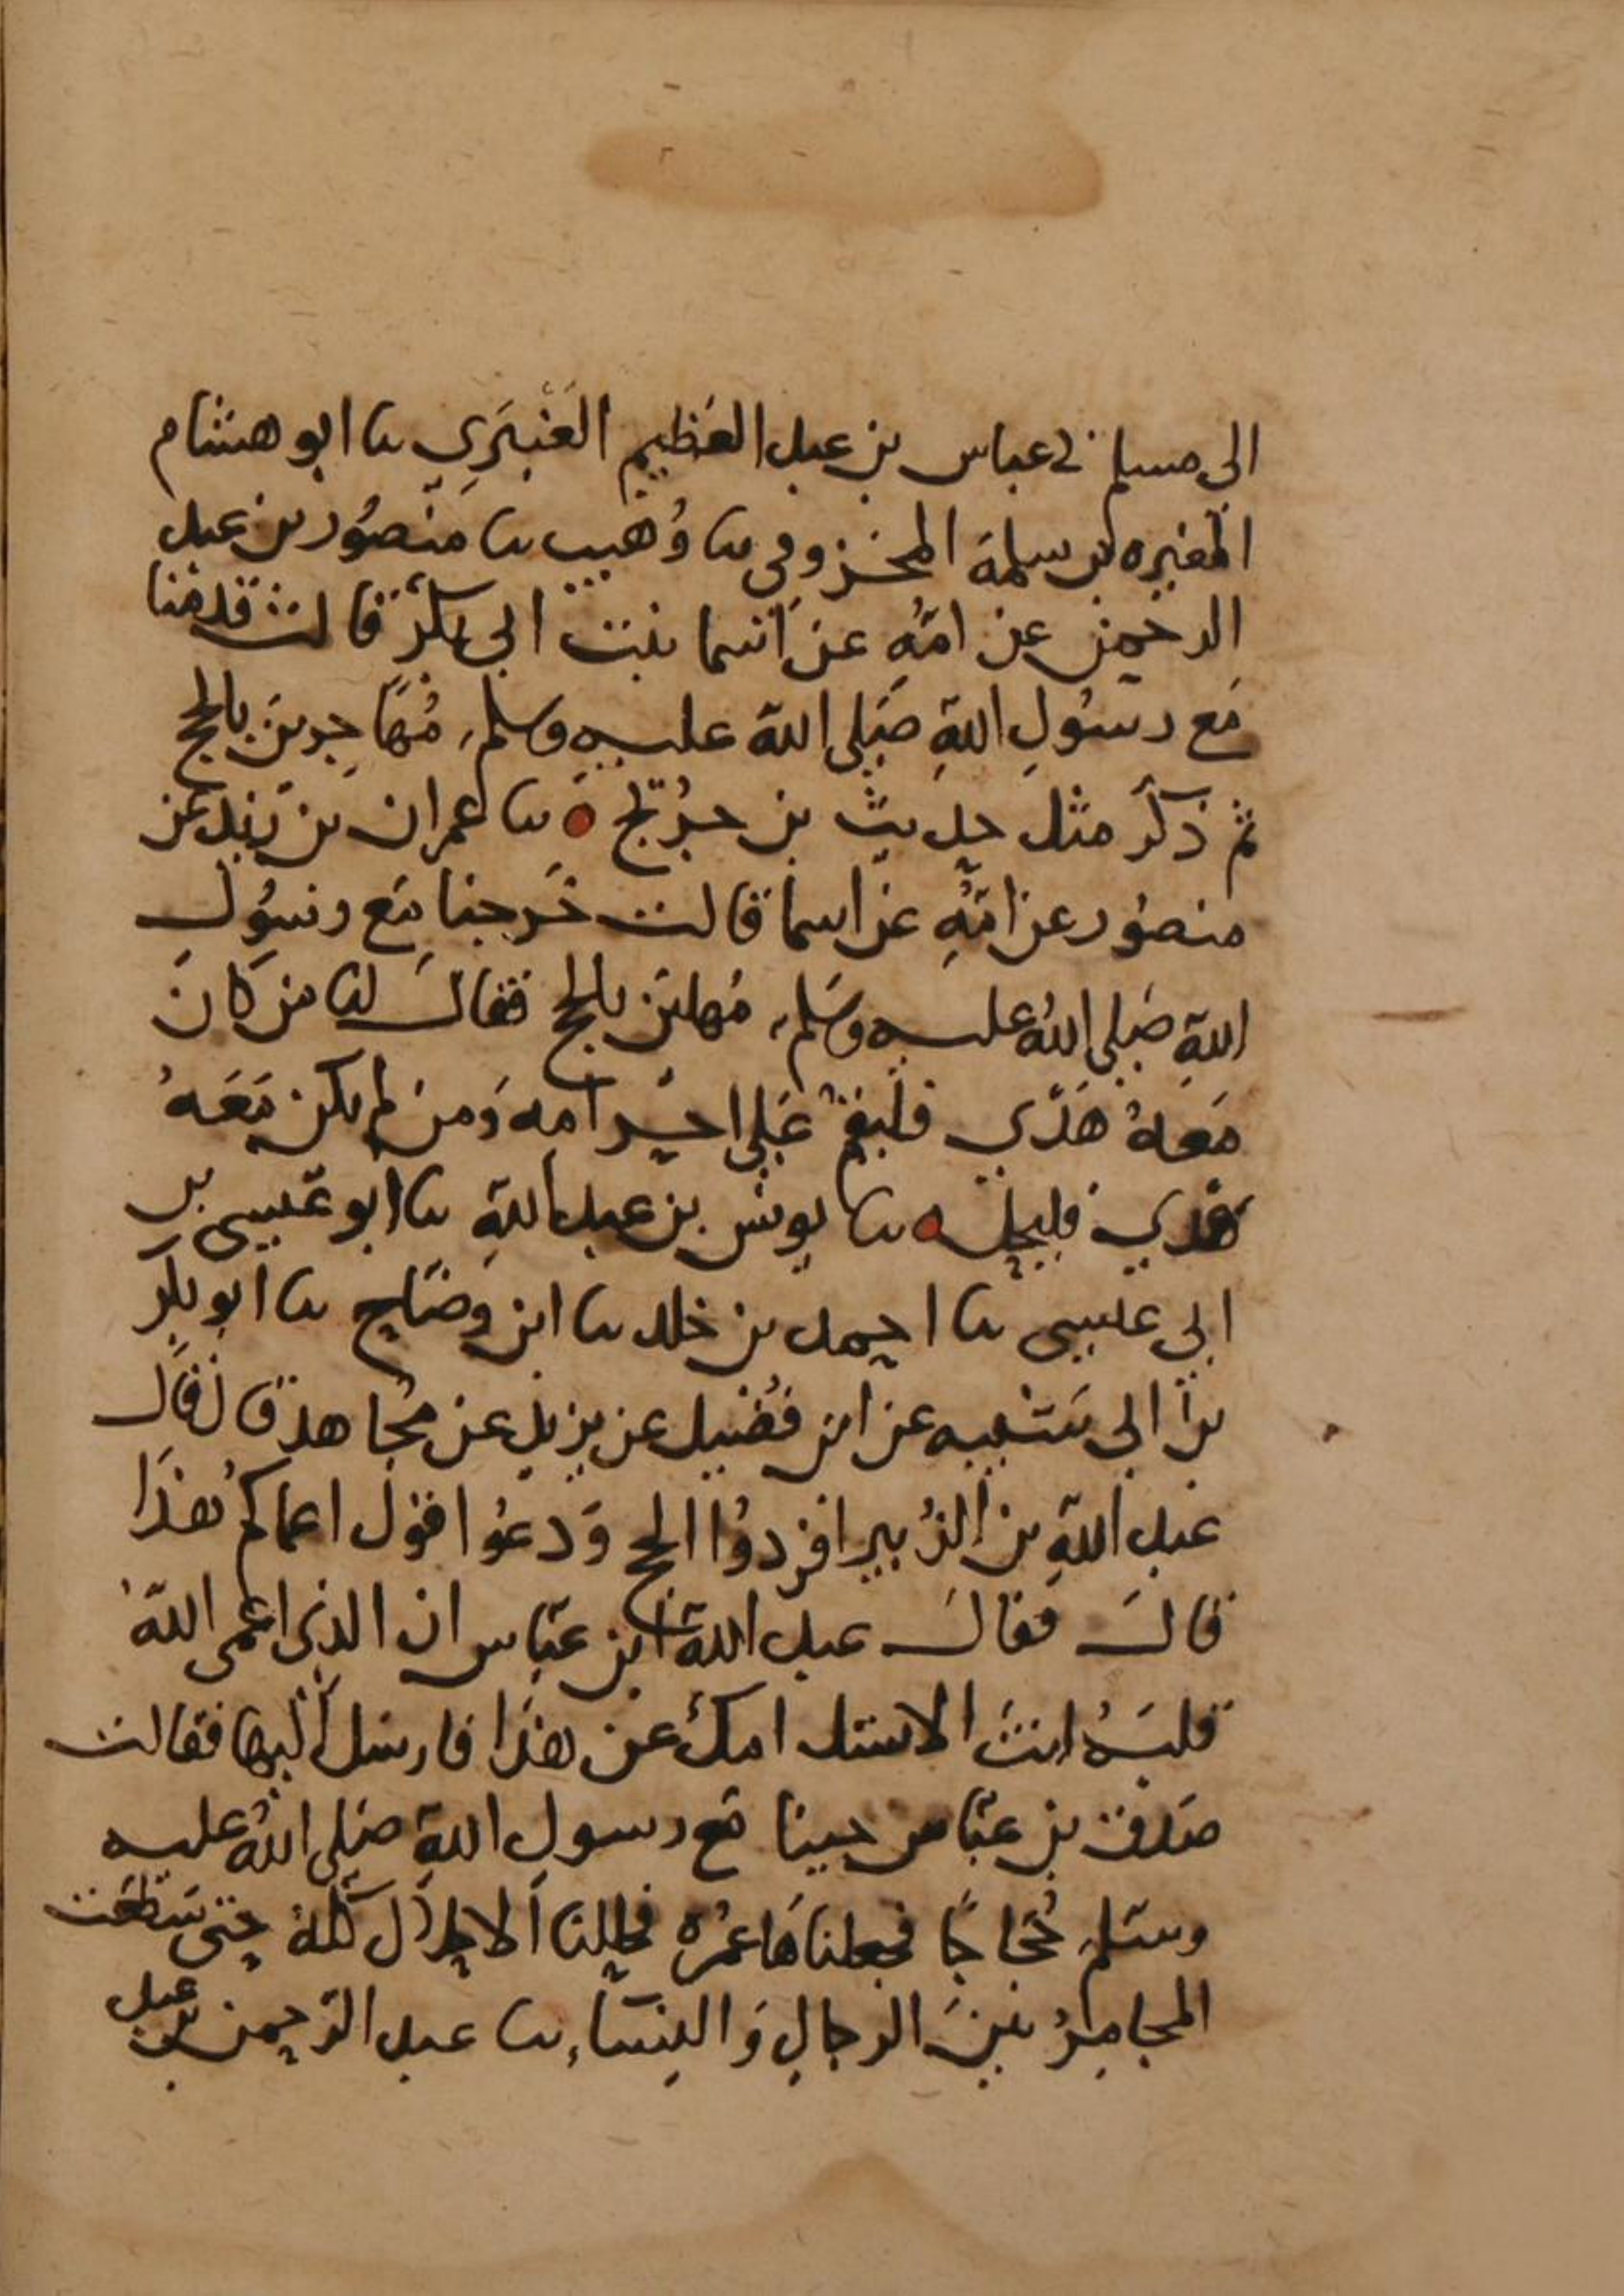 الى مسلم نى عباس بن عبد العظيم العَنْبَرِي نا ابو هشام
المغيره بن سلمة المخزومي نا وُهَيب نا منصُور بن عبد
الرحمن عن امّهِ عن اسما بنت ابي بكرٍ قالت قدمنا
مَع رسُولِ اللهِ صَلى الله عليه وسلم مُهَاجرين بالحج
ثم ذكرَ مثل حديث بن جُريج ٥ نا عمران بن يزيد عن
منصُور عن امّهِ عن اسما قالت خَرجنا مَع رسُولِ
اللهِ صَلى اللهُ عليه وسَلم مُهلين بالحج فقالَ لنا من كانَ
مَعهُ هَدْي فليقم عَلى احرامه وَمن لم يكن مَعَهُ
هَدي فليحل ٥ نا يونس بن عبد اللهِ نا ابو عيسى بن
ابي عيسى نا احمد بن خلد نا ابن وضاح نا ابو بكر
بن ابي شَيْبه عن ابن فُضَيل عن يزيد عن مُجاهد قال قال
عبد اللهِ بن الزُبير افرِدوُا الحج وَدعُوا قول اعماكم هذَا
قالَ فقالَ عبد الله ابن عبّاس ان الذي اعمى اللهُ
قلبَهُ انتَ الا تسئل امك عن هذَا فارسَل اليها فقالت
صَدق بن عبّاس جينا مَع رسول اللهِ صَلى اللهُ عليه
وسَلم حُجاجًا فجعلناهَا عمُره فحللنا الاحلال كُلهُ حتى سَطَعَت
المجامِرُ بينَ الرجالِ وَالنِسَاءِ نا عبد الرّحمن بن عبد